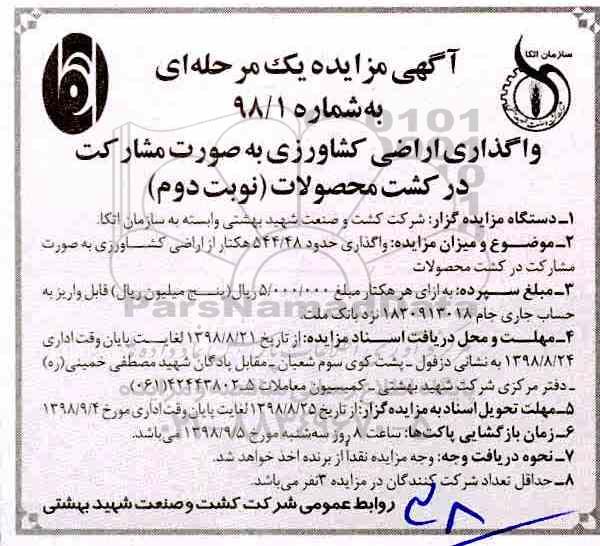 سازمان اتکا
آگهی مزایده یک مرحله‌ای
به شماره ۹۸/۱
واگذاری اراضی کشاورزی به صورت مشارکت
در کشت محصولات (نوبت دوم)
۱ـ دستگاه مزایده گزار: شرکت کشت و صنعت شهید بهشتی وابسته به سازمان اتکا.
۲ـ موضوع و میزان مزایده: واگذاری حدود ۵۴۴/۴۸ هکتار از اراضی کشاورزی به صورت
مشارکت در کشت محصولات
۳ـ مبلغ سپرده: به ازای هر هکتار مبلغ ۵/۰۰۰/۰۰۰ ریال (پنج میلیون ریال) قابل واریز به
حساب جاری جام ۱۸۳۰۹۱۳۰۱۸ نزد بانک ملت.
۴ـ مهلت و محل دریافت اسناد مزایده: از تاریخ ۱۳۹۸/۸/۲۱ لغایت پایان وقت اداری
۱۳۹۸/۸/۲۴ به نشانی دزفول ـ پشت کوی سوم شعبان ـ مقابل پادگان شهید مصطفی خمینی(ره)
ـ دفتر مرکزی شرکت شهید بهشتی ـ کمیسیون معاملات ۵ـ۴۲۴۴۳۸۰۲(۰۶۱)
۵ـ مهلت تحویل اسناد به مزایده گزار: از تاریخ ۱۳۹۸/۸/۲۵ لغایت پایان وقت اداری مورخ ۱۳۹۸/۹/۴
۶ـ زمان بازگشایی پاکت‌ها: ساعت ۸ روز سه‌شنبه مورخ ۱۳۹۸/۹/۵ می‌باشد.
۷ـ نحوه دریافت وجه: وجه مزایده نقداً از برنده اخذ خواهد شد.
۸ـ حداقل تعداد شرکت کنندگان در مزایده ۳ نفر می‌باشد.
روابط عمومی شرکت کشت و صنعت شهید بهشتی
ParsNamadData